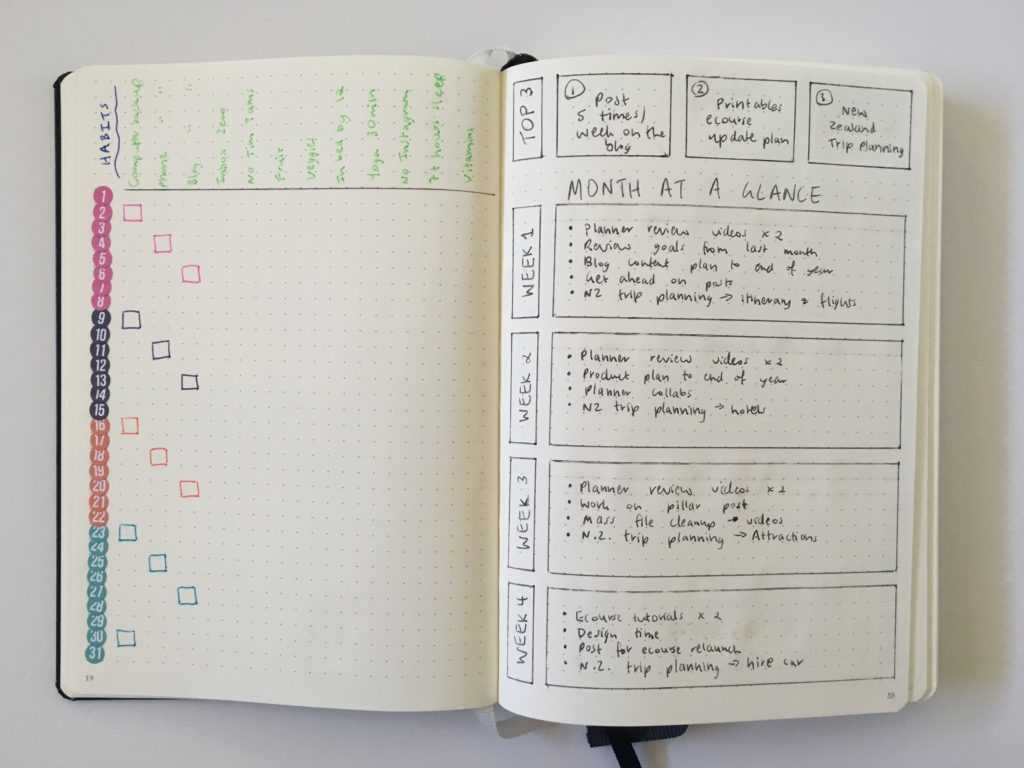 HABITS
Computer backup
Phone " "
Blog " "
Inbox Zero
No Tim Tams
Fruit
Veggies
In bed by 12
Yoga 30min
No Instagram
7+ hours sleep
Vitamins
1
2
3
4
5
6
7
8
9
10
11
12
13
14
15
16
17
18
19
20
21
22
23
24
25
26
27
28
29
30
31
TOP 3
1
Post
5 times/
week on the
blog
2
Printables
ecourse
update plan
3
New
Zealand
Trip Planning
MONTH AT A GLANCE
WEEK 1
• Planner review videos x 2
• Review goals from last month
• Blog content plan to end of year
• Get ahead on posts
• NZ trip planning → itinerary & flights
WEEK 2
• Planner review videos x 2
• Product plan to end of year
• Planner collabs
• NZ trip planning → hotels
WEEK 3
• Planner review videos x 2
• Work on pillar post
• Mass file cleanup → videos
• N.Z. trip planning → Attractions
WEEK 4
• Ecourse tutorials x 2
• Design time
• Post for ecourse relaunch
• N.Z. trip planning → hire car